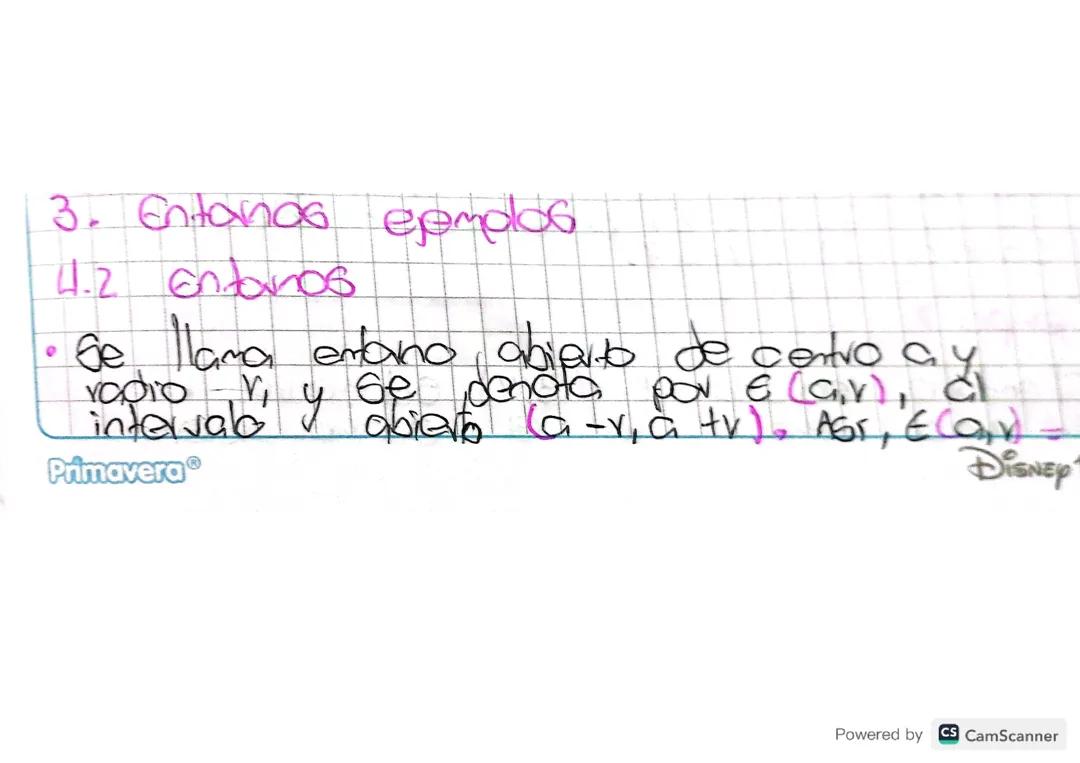 3. Entornos ejemplos
4.2 Entornos
• Se llama entorno abierto de centro a y
radio r, y se denota por E (a,r), al
intervalo abierto (a -r, a +r). Así, E(a,r) =
Primavera®
Disney
Powered by CS CamScanner